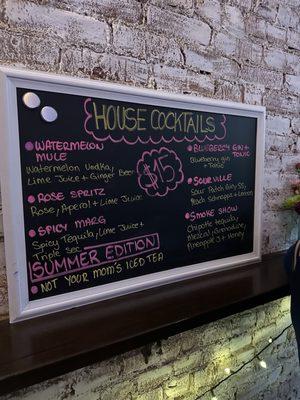 HOUSE COCKTAILS
$15
WATERMELON
MULE
Watermelon Vodka,
Lime Juice + Ginger Beer
ROSE SPRITZ
Rosé, Aperol + Lime Juice
SPICY MARG
Spicy Tequila, Lime Juice +
Triple Sec
SUMMER EDITION
NOT YOUR MOM'S ICED TEA
BLUEBERRY GIN +
TONIC
Blueberry Gin
+ Tonic
SOUR VILLE
Sour Patch
Peach Schnapps + Lemon
SMOKE SHOW
Chipotle Tequila,
Mezcal, Grenadine,
Pineapple J + Honey